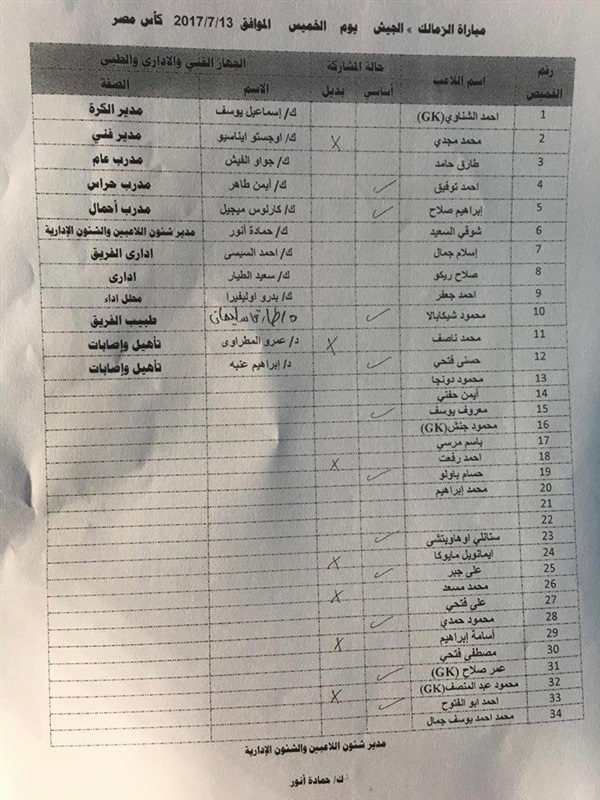 مباراة الزمالك & الجيش يوم الخميس الموافق 2017/7/13 كأس مصر
رقم القميص اسم اللاعب حالة المشاركة الجهاز الفني والإدارى والطبى
أساسي بديل الاسم الصفة
1 احمد الشناوي(GK) ك/ إسماعيل يوسف مدير الكرة
2 محمد مجدي X ك/ اوجستو ايناسيو مدير فني
3 طارق حامد ك/ جواو الفيش مدرب عام
4 احمد توفيق ✓ ك/ أيمن طاهر مدرب حراس
5 إبراهيم صلاح ✓ ك/ كارلوس ميجيل مدرب أحمال
6 شوقي السعيد ك/ حمادة أنور مدير شئون اللاعبين والشئون الإدارية
7 إسلام جمال ك/ احمد السيسى ادارى الفريق
8 صلاح ريكو ك/ سعيد الطيار ادارى
9 احمد جعفر ك/ بدرو اوليفيرا محلل اداء
10 محمود شيكابالا ✓ طبيب الفريق
11 محمد ناصف X د/ عمرو المطراوى تأهيل وإصابات
12 حسنى فتحي ✓ د/ إبراهيم عتبه تأهيل وإصابات
13 محمود دونجا
14 أيمن حفني
15 معروف يوسف ✓
16 محمود جنش(GK)
17 باسم مرسي
18 احمد رفعت X
19 حسام باولو ✓
20 محمد إبراهيم
21
22
23 ستانلي اوهاويتشى ✓
24 ايمانويل مايوكا X
25 على جبر ✓
26 محمد مسعد X
27 على فتحي
28 محمود حمدي ✓
29 أسامة إبراهيم X
30 مصطفى فتحي
31 عمر صلاح (GK) ✓
32 محمود عبد المنصف(GK) X
33 احمد ابو الفتوح ✓
34 محمد احمد يوسف جمال
مدير شئون اللاعبين والشئون الإدارية
ك/ حمادة أنور